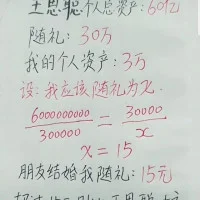 王思聪个人总资产:60亿
随礼:30万
我的个人资产:3万
设:我应该随礼为x.
6000000000/300000 = 30000/x
x=15
朋友结婚我随礼:15元